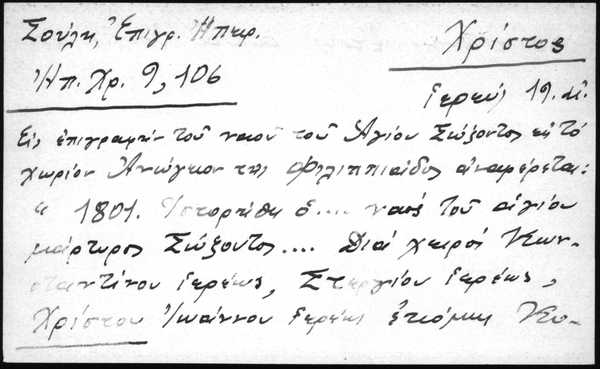 Σούλη, Ἐπιγρ. Ἠπειρ.
Χρίστος
Ἠπ. Χρ. 9, 106
ἱερεύς 19. αἰ.
Εἰς ἐπιγραφήν τοῦ ναοῦ τοῦ Ἁγίου Σώζοντος εἰς τό
χωρίον Ἀνώγειον τῆς Φιλιππιάδος ἀναφέρεται:
" 1801. Ἱστορήθη ὁ .... ναός τοῦ ἁγίου
μάρτυρος Σώζοντος .... Διά χειρός Κων-
σταντίνου ἱερέως, Στεργίου ἱερέως,
Χρίστου Ἰωάννου ἱερέως